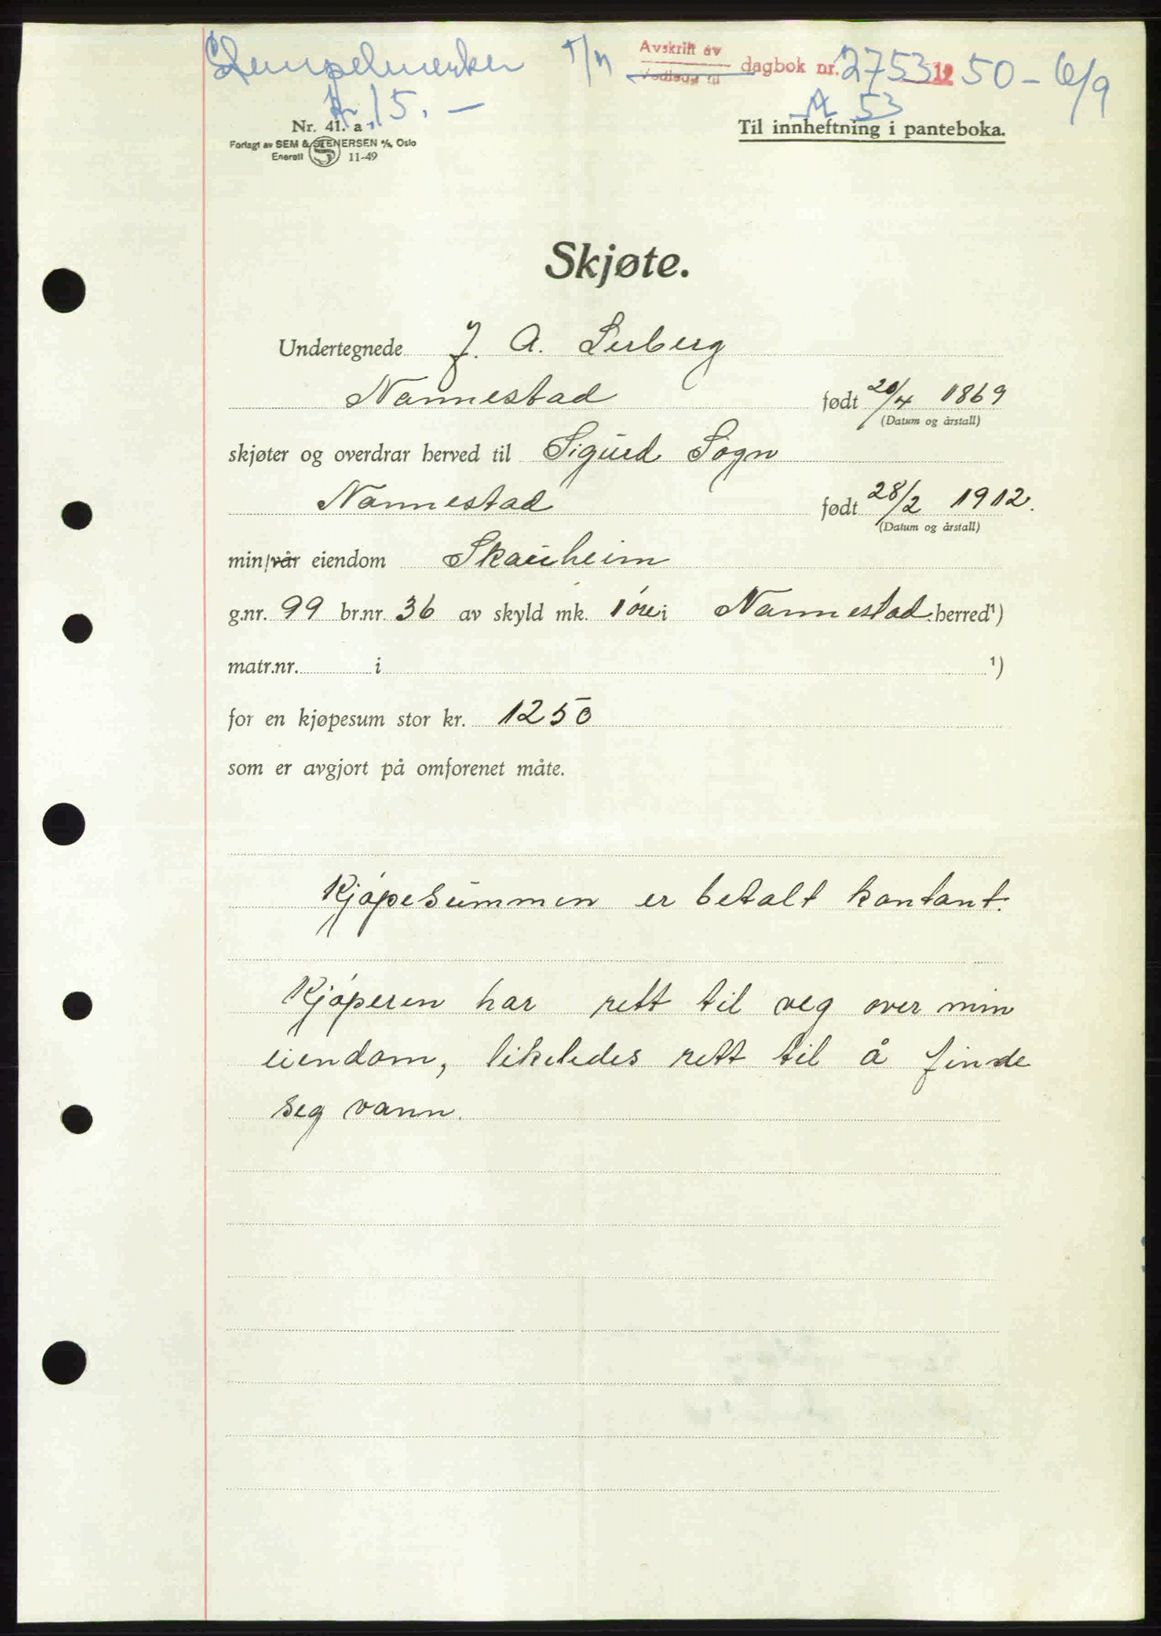 Stempelmerker
kr. 15.—
Avskrift av
Vedlegg til
dagbok nr. 2753 19 50 - 6/9
A 53
Nr. 41. a
Forlagt av SEM & STENERSEN A/S, Oslo
Enerett S 11-49
Til innheftning i panteboka.
Skjøte.
Undertegnede J. A. Serberg
Nannestad født 20/4 1869
(Datum og årstall)
skjøter og overdrar herved til Sigurd Sogn
Nannestad født 28/2 1912.
(Datum og årstall)
min/vår eiendom Skauheim
g.nr. 99 br.nr. 36 av skyld mk. 1 øre i Nannestad herred¹)
matr.nr. i ¹)
for en kjøpesum stor kr. 1250
som er avgjort på omforenet måte.
Kjøpesummen er betalt kontant.
Kjøperen har rett til veg over min
eiendom, likeledes rett til å finde
seg vann.